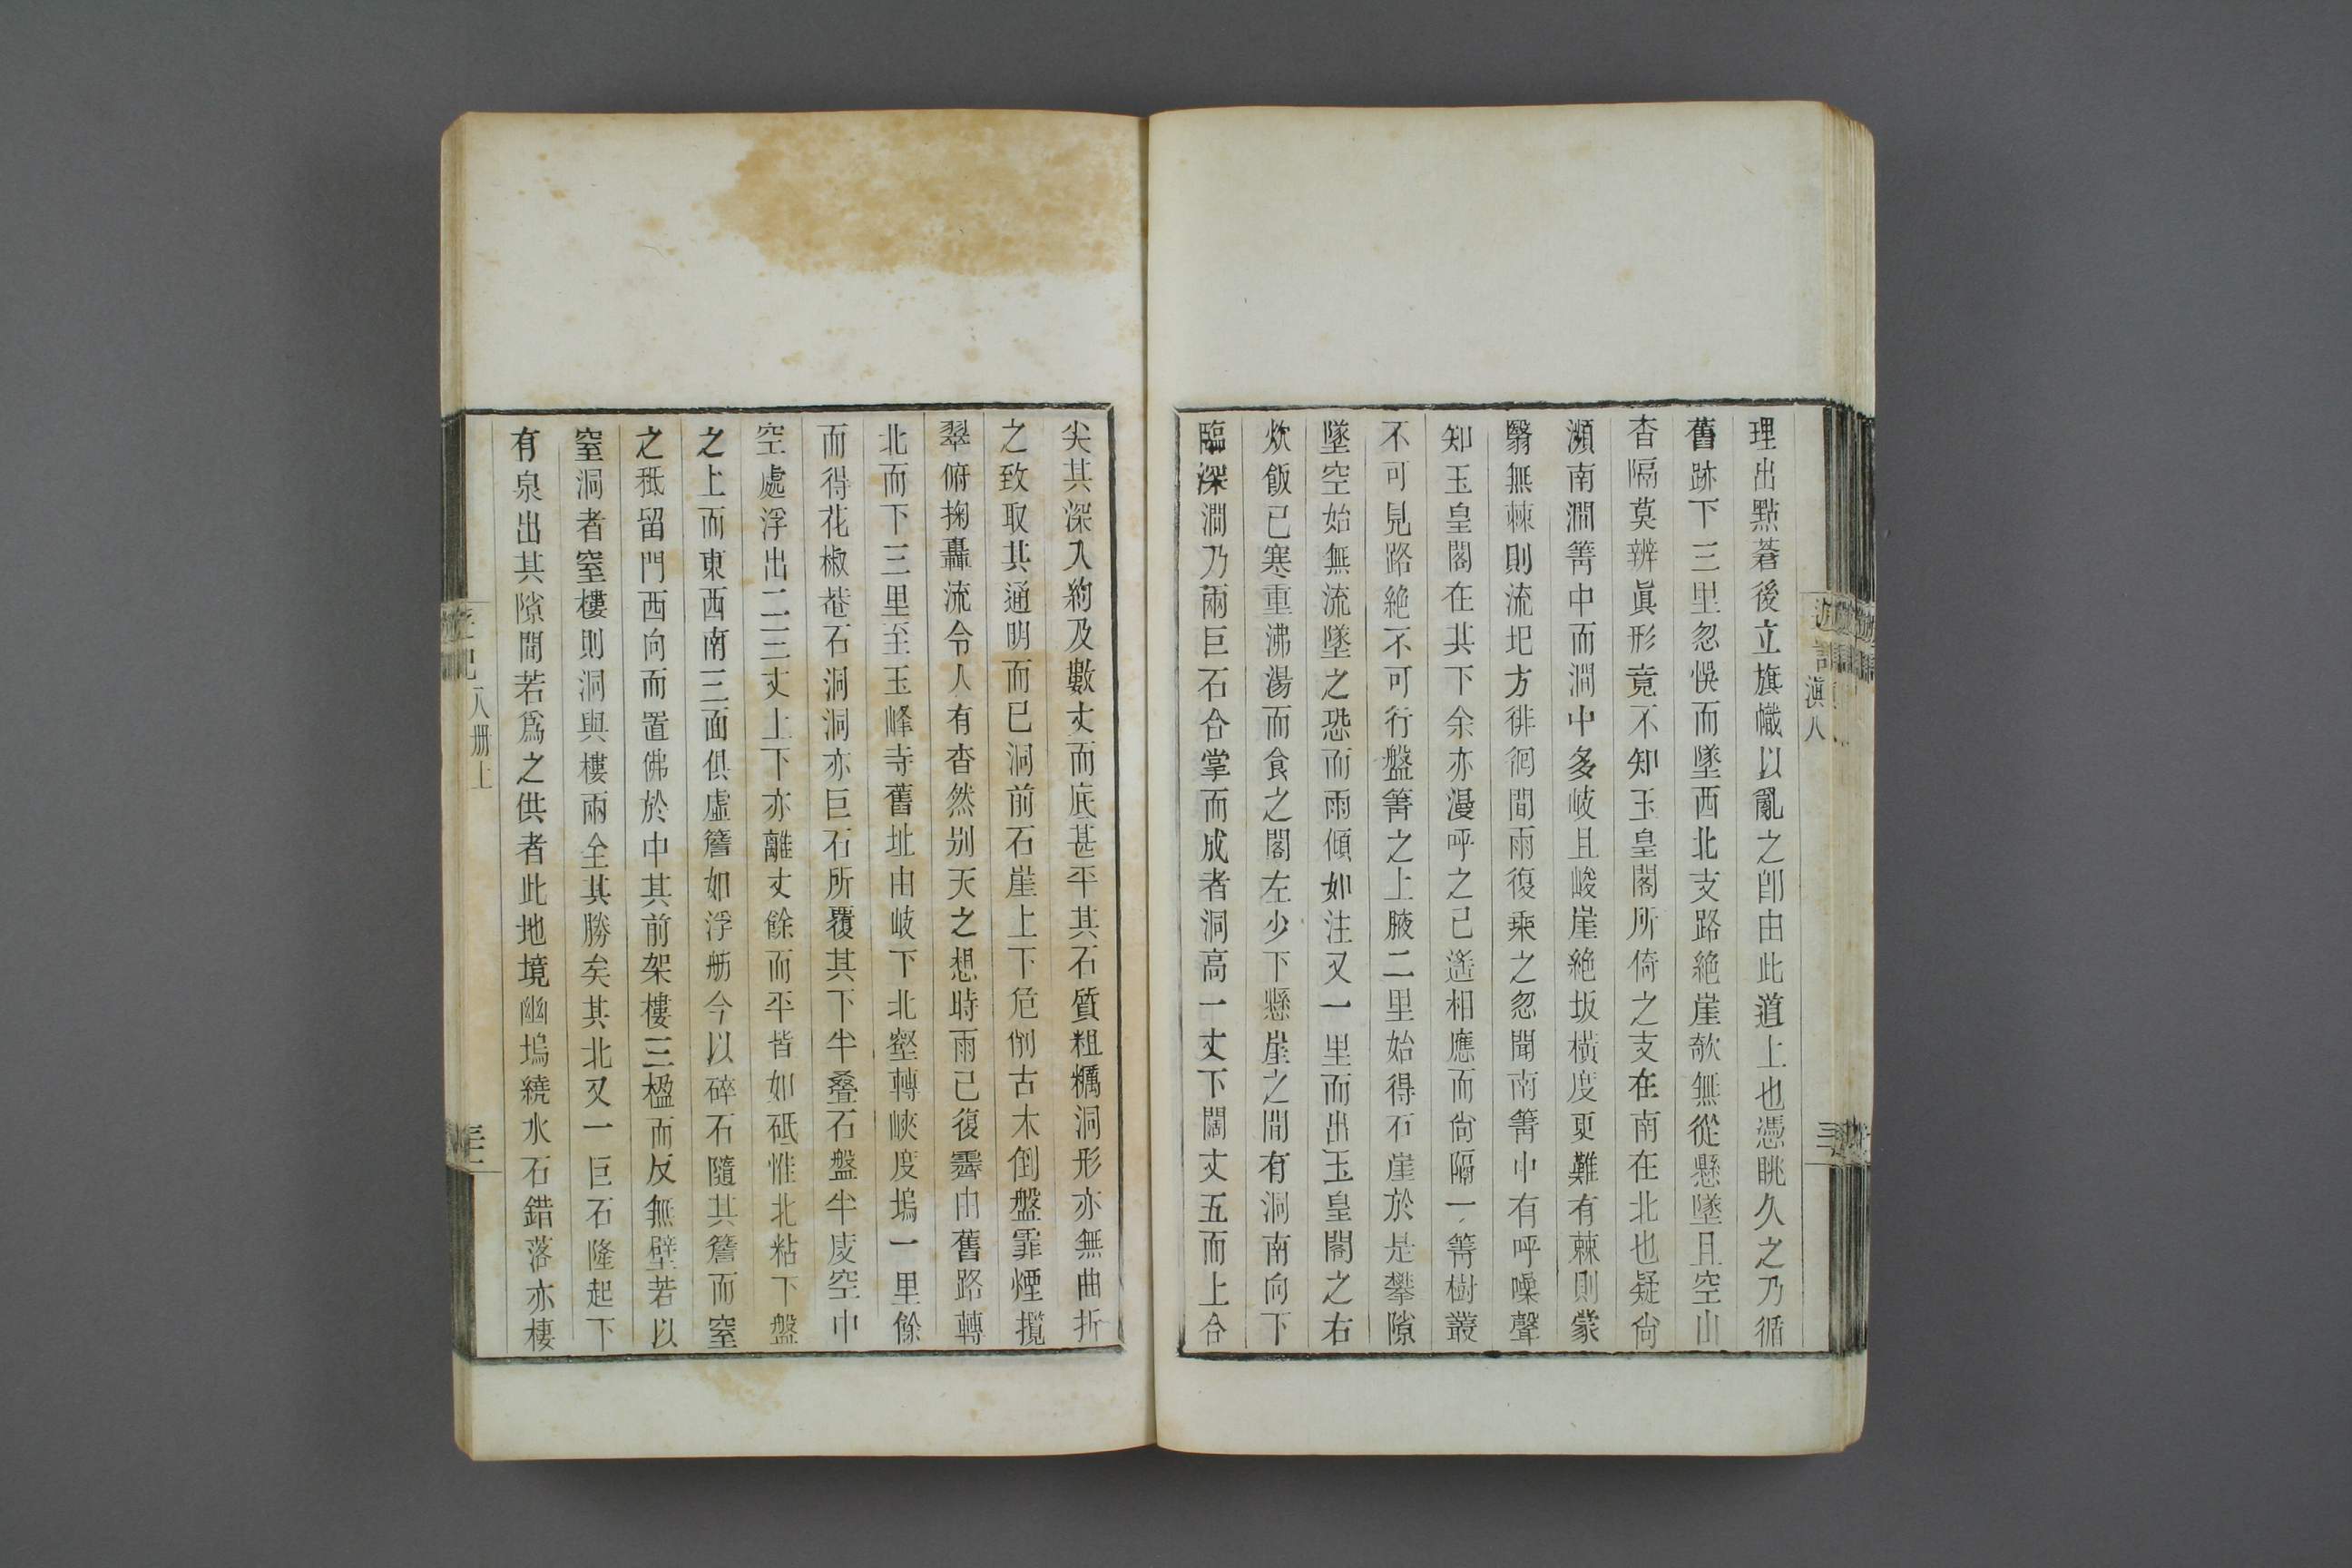 理出點蒼後立旗幟以亂之卽由此道上也憑眺久之乃循
舊跡下三里忽悞而墜西北支路絶崖欹無從懸墜且空山
杳隔莫辨眞形竟不知玉皇閣所倚之支在南在北也疑尙
瀕南澗箐中而澗中多岐且峻崖絶坂橫度更難有棘則蒙
翳無棘則流圯方徘徊間雨復乘之忽聞南箐中有呼噪聲
知玉皇閣在其下余亦漫呼之已遙相應而尙隔一箐樹叢
不可見路絶不可行盤箐之上腋二里始得石崖於是攀隙
墜空始無流墜之恐而雨傾如注又一里而出玉皇閣之右
炊飯已寒重沸湯而食之閣左少下懸崖之間有洞南向下
臨深澗乃兩巨石合掌而成者洞高一丈下闊丈五而上合
尖其深入約及數丈而底甚平其石質粗糲洞形亦無曲折
之致取其通明而已洞前石崖上下危削古木倒盤霏煙攬
翠俯掬轟流令人有杳然别天之想時雨已復霽由舊路轉
北而下三里至玉峰寺舊址由岐下北壑轉峽度塢一里餘
而得花椒菴石洞洞亦巨石所覆其下半疊石盤半庋空中
空處浮出二三丈上下亦離丈餘而平皆如砥惟北粘下盤
之上而東西南三面俱虛簷如浮舫今以碎石隨其簷而窒
之秪留門西向而置佛於中其前架樓三楹而反無壁若以
窒洞者窒樓則洞與樓兩全其勝矣其北又一巨石隆起下
有泉出其隙間若爲之供者此地境幽塢繞水石錯落亦棲
滇八
八册上